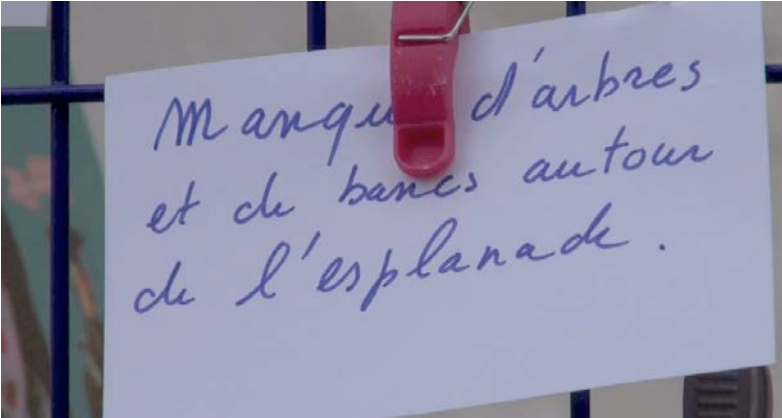 Manque d'arbres
et de bancs autour
de l'esplanade.